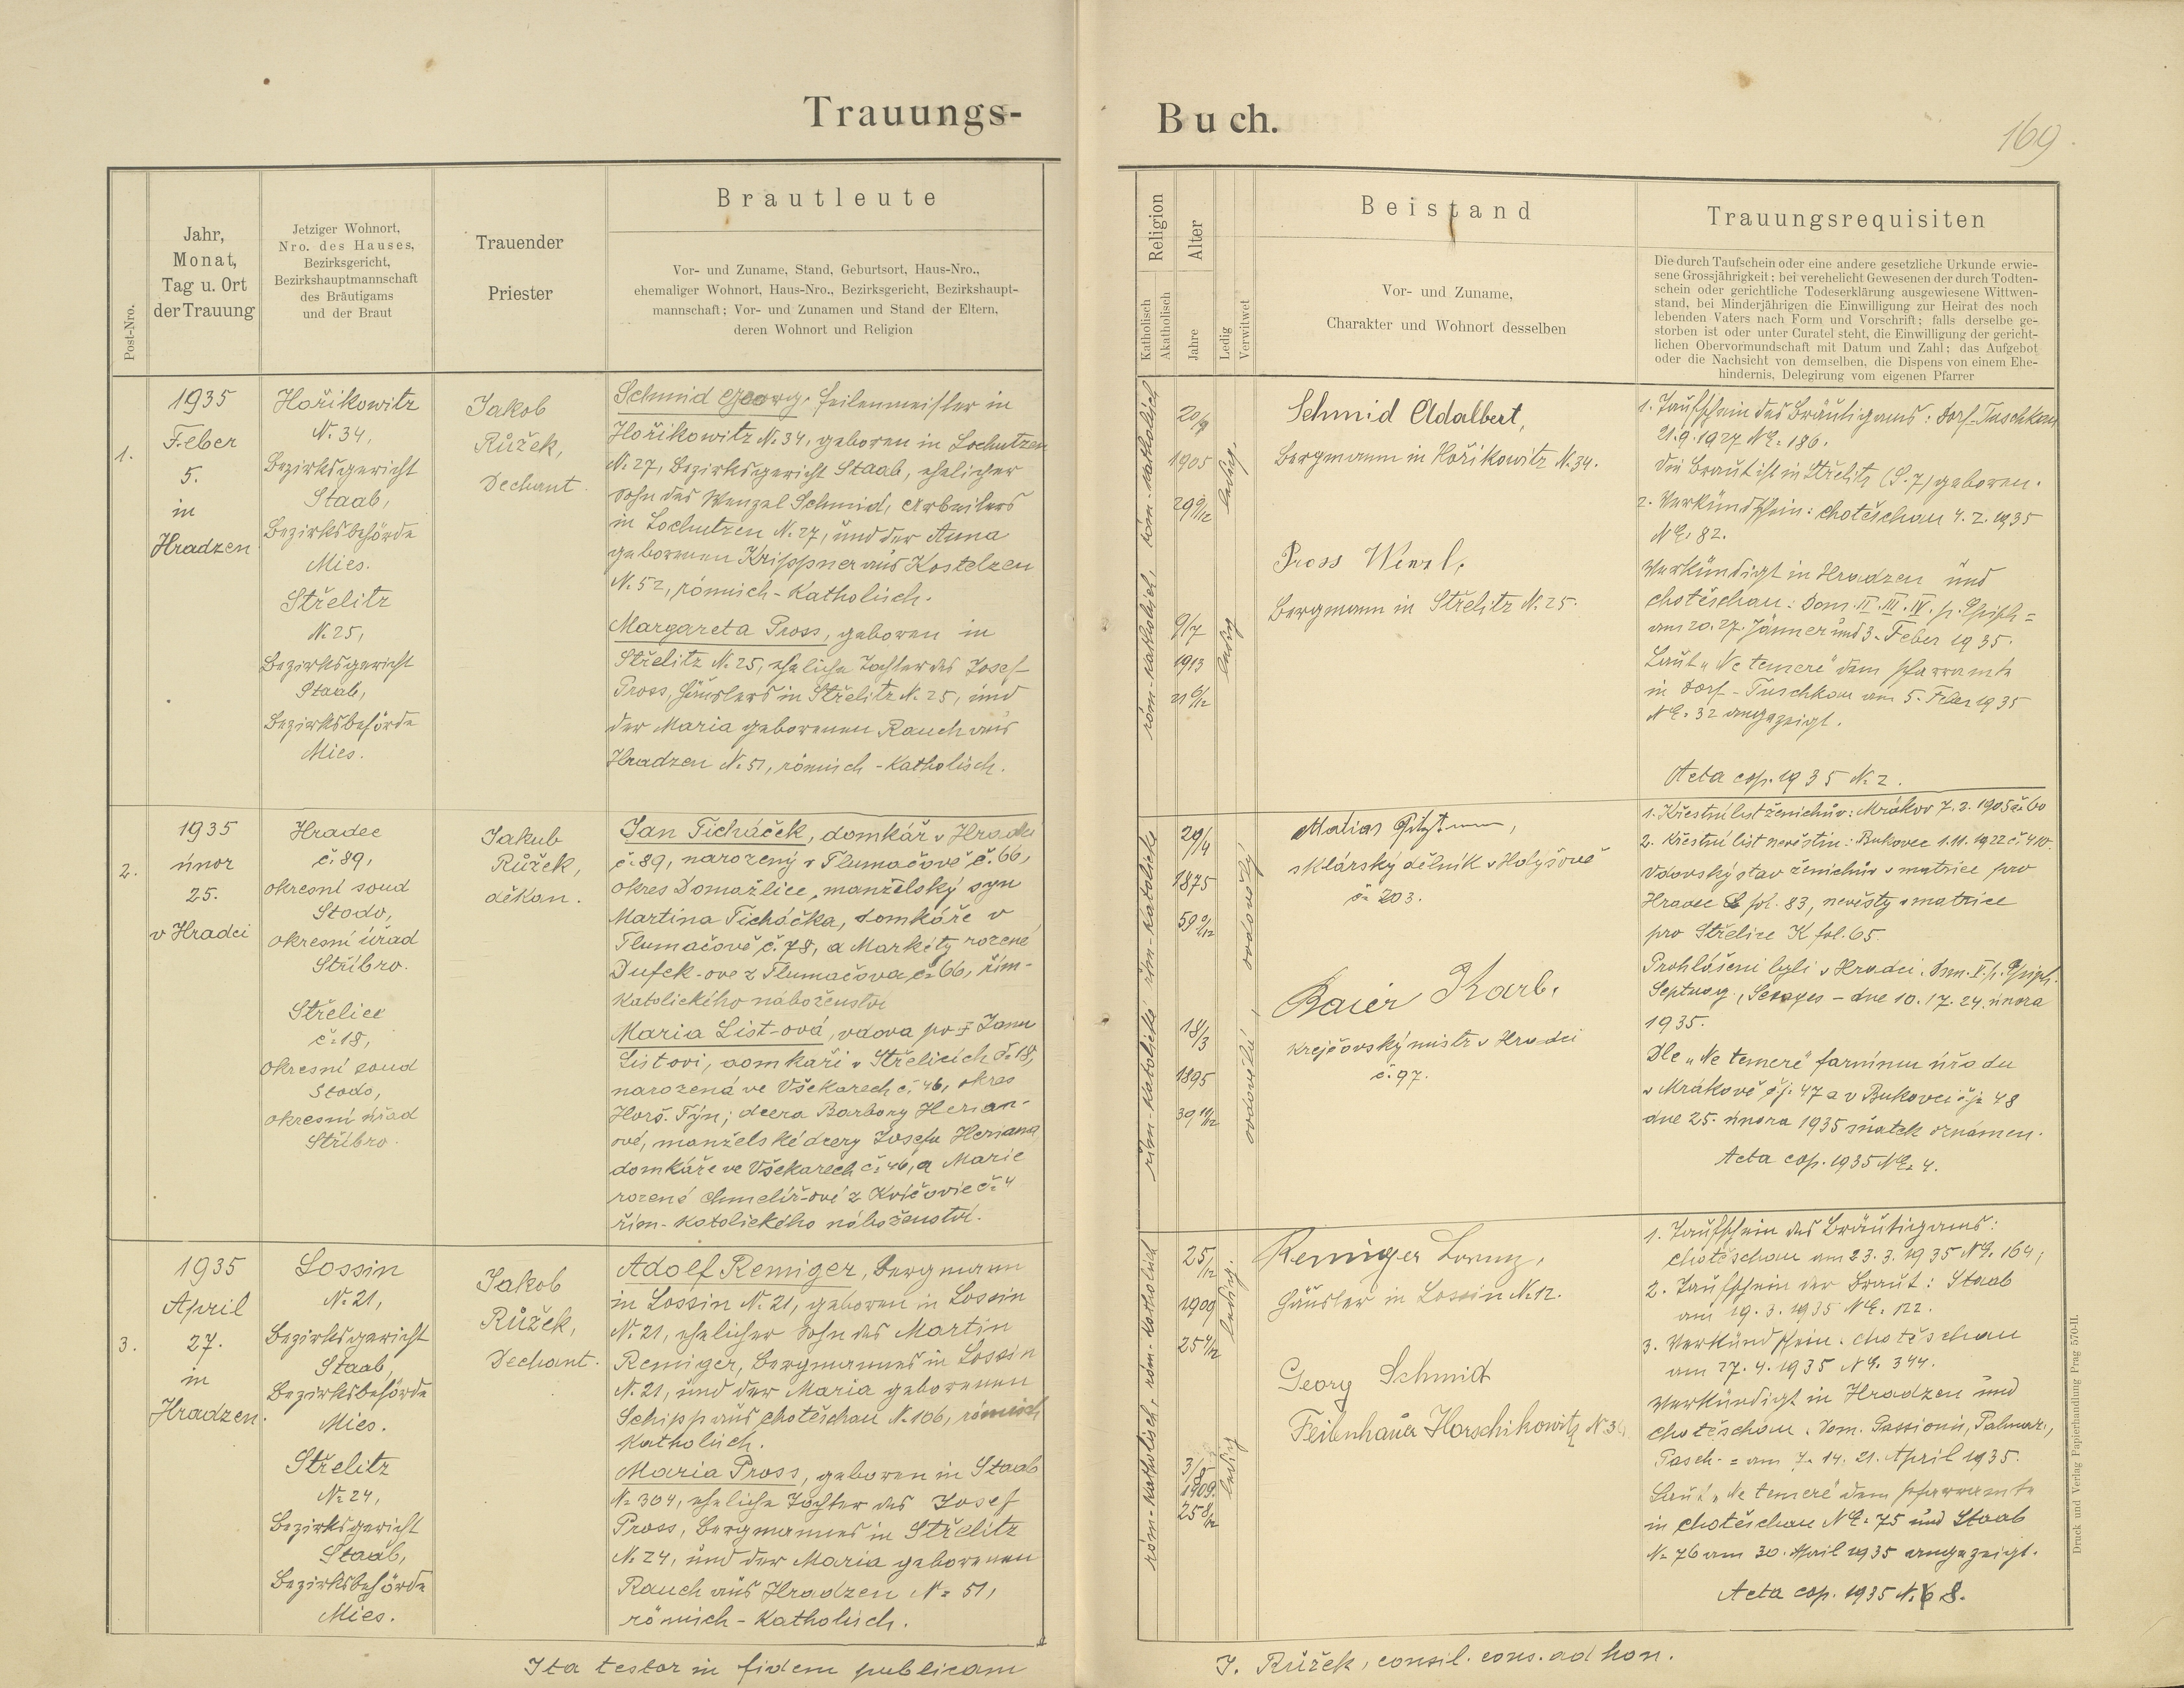 Trauungs-
Buch.
169
Post-Nro.
Jahr,
Monat,
Tag u. Ort
der Trauung
Jetziger Wohnort,
Nro. des Hauses,
Bezirksgericht,
Bezirkshauptmannschaft
des Bräutigams
und der Braut
Trauender
Priester
Brautleute
Vor- und Zuname, Stand, Geburtsort, Haus-Nro.,
ehemaliger Wohnort, Haus-Nro., Bezirksgericht, Bezirkshaupt-
mannschaft; Vor- und Zunamen und Stand der Eltern,
deren Wohnort und Religion
Religion
Katholisch
Akatholisch
Alter
Jahre
Ledig
Verwitwet
Beistand
Vor- und Zuname,
Charakter und Wohnort desselben
Trauungsrequisiten
Die durch Taufschein oder eine andere gesetzliche Urkunde erwie-
sene Grossjährigkeit; bei verehelicht Gewesenen der durch Todten-
schein oder gerichtliche Todeserklärung ausgewiesene Wittwen-
stand, bei Minderjährigen die Einwilligung zur Heirat des noch
lebenden Vaters nach Form und Vorschrift; falls derselbe ge-
storben ist oder unter Curatel steht, die Einwilligung der gericht-
lichen Obervormundschaft mit Datum und Zahl; das Aufgebot
oder die Nachsicht von demselben, die Dispens von einem Ehe-
hindernis, Delegirung vom eigenen Pfarrer
1.
1935
Feber
5.
in
Hradzen
Hořikowitz
N. 34,
Bezirksgericht
Staab,
Bezirksbehörde
Mies.
Střelitz
N. 25,
Bezirksgericht
Staab,
Bezirksbehörde
Mies.
Jakob
Růžek,
Dechant.
Schmid Georg, Feilenmeister in
Hořikowitz N. 34, geboren in Lochutzen
N. 27, Bezirksgericht Staab, ehelicher
Sohn des Wenzel Schmid, Arbeiters
in Lochutzen N. 27, und der Anna
geborenen Krippner aus Kostelzen
N. 52, römisch-Katholisch.
Margareta Pross, geboren in
Střelitz N. 25, eheliche Tochter des Josef
Pross, Häuslers in Střelitz N. 25, und
der Maria geborenen Rauch aus
Hradzen N. 51, römisch-Katholisch.
röm.-katholisch, röm.-katholisch
20/9
1905
29 9/12
9/7
1913
21 6/12
ledig,
ledig
Schmid Adalbert,
Bergmann in Hořikowitz N. 34.
Pross Wenzl,
Bergmann in Střelitz N. 25.
1. Taufschein des Bräutigams: Dorf-Tuschkau
21.9.1927 NE. 186.
Die Braut ist in Střelitz (S. 7) geboren.
2. Verkündschein: Chotěschau 4.2.1935
NE. 82.
Verkündigt in Hradzen und
Chotěschau: Dom. II. III. IV. p. Epiph =
am 20. 27. Jänner und 3. Feber 1935.
Laut „Ne temere" dem Pfarramte
in Dorf-Tuschkau am 5. Feber 1935
NE. 32 angezeigt.
Acta cop. 1935 N. 2.
2.
1935
únor
25.
v Hradci
Hradec
č. 89,
okresní soud
Stodo,
okresní úřad
Stříbro.
Střelice
č. 18,
okresní soud
Stodo,
okresní úřad
Stříbro.
Jakub
Růžek,
děkan.
Jan Ticháček, domkář v Hradci
č. 89, narozený v Tlumačově č. 66,
okres Domažlice, manželský syn
Martina Ticháčka, domkáře v
Tlumačově č. 78, a Markéty rozené
Dufek-ové z Tlumačova č. 66, řím-
katolického náboženství
Maria List-ová, vdova po † Janu
Listovi, domkáři v Střelicích č. 18,
narozená ve Všekarech č. 46, okres
Horš. Týn; dcera Barbory Herian-
ové, manželské dcery Josefa Heriana
domkáře ve Všekarech č. 46, a Marie
rozené Chmelíř-ové z Kvíčovic č. 4
řím-katolického náboženství.
řím-katolické řím-katolické
29/4
1875
59 9/12
18/3
1895
39 11/12
ovdovělý
ovdovělá,
sklářský dělník v Holýšově
č. 203.
Baier Karl,
krejčovský mistr v Hradci
č. 97.
1. Křestní list ženichův: Mrákov 7.2.1905 č. 60
2. Křestní list nevěstin: Bukovec 1.11.1922 č. 410.
Vdovský stav ženichův v matrice pro
Hradec fol. 83, nevěsty v matrice
pro Střelice K fol. 65.
Prohlášeni byli v Hradci. Dom. V. p. Epiph.
Septuag., Sexages - dne 10. 17. 24. února
1935.
Dle „Ne temere" farnímu úřadu
v Mrákově čj. 47 a v Bukovci čj. 48
dne 25. února 1935 sňatek oznámen.
Acta cop. 1935 NE. 4.
3.
1935
April
27.
in
Hradzen.
Lossin
N. 21,
Bezirksgericht
Staab,
Bezirksbehörde
Mies.
Střelitz
N. 24,
Bezirksgericht
Staab,
Bezirksbehörde
Mies.
Jakob
Růžek,
Dechant.
Adolf Remiger, Bergmann
in Lossin N. 21, geboren in Lossin
N. 21, ehelicher Sohn des Martin
Remiger, Bergmannes in Lossin
N. 21, und der Maria geborenen
Schipp aus Chotěschau N. 106, römisch
Katholisch.
Maria Pross, geboren in Staab
N. 304, eheliche Tochter des Josef
Pross, Bergmannes in Střelitz
N. 24, und der Maria geborenen
Rauch aus Hradzen N. 51,
römisch-Katholisch.
röm-katholisch, röm-katholisch
25/12
1909
25 4/12
1909
25 8/12
ledig.
ledig
Remiger Lorenz,
Häusler in Lossin N. 12.
Georg Schmid
Feilenhauer Horschikowitz N 34
1. Taufschein des Bräutigams:
Chotěschau am 23.3.1935 NE. 164;
2. Taufschein der Braut: Staab
am 19.3.1935 NE. 122.
3. Verkündschein: Chotěschau
am 27.4.1935 NE. 344.
Verkündigt in Hradzen und
Chotěschau: Dom. Passionis, Palmar.,
Pasch. = am 7. 14. 21. April 1935.
Laut „Ne temere" dem Pfarramte
in Chotěschau NE. 75 und Staab
N. 76 am 30. April 1935 angezeigt.
Acta cop. 1935 N. 8.
Ita testor in fidem publicam
J. Růžek, consil. cons. ad hon.
Druck und Verlag Papierhandlung Prag 570-II.